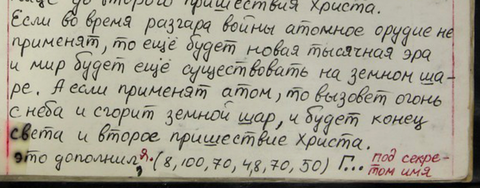 ещё до второго пришествия Христа.
Если во время разгара войны атомное орудие не
применят, то ещё будет новая тысячная эра
и мир будет ещё существовать на земном ша-
ре. А если применят атом, то вызовет огонь
с неба и сгорит земной шар, и будет конец
света и второе пришествие Христа.
это дополнил я. (8, 100, 70, 48, 70, 50) Г... под секре-
том имя